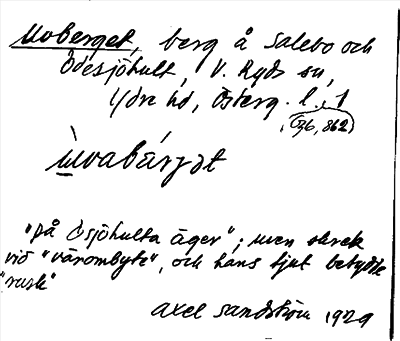 Moberget, berg å Salebo och
Ödesjöhult, V. Ryds sn,
Ydre hd, Österg. l.
(Ögb, 862)
"på Ösjöhulta äger"; men
vid "värombyte", och hans ljut betydde
"rusk"
Axel Sandström 1929